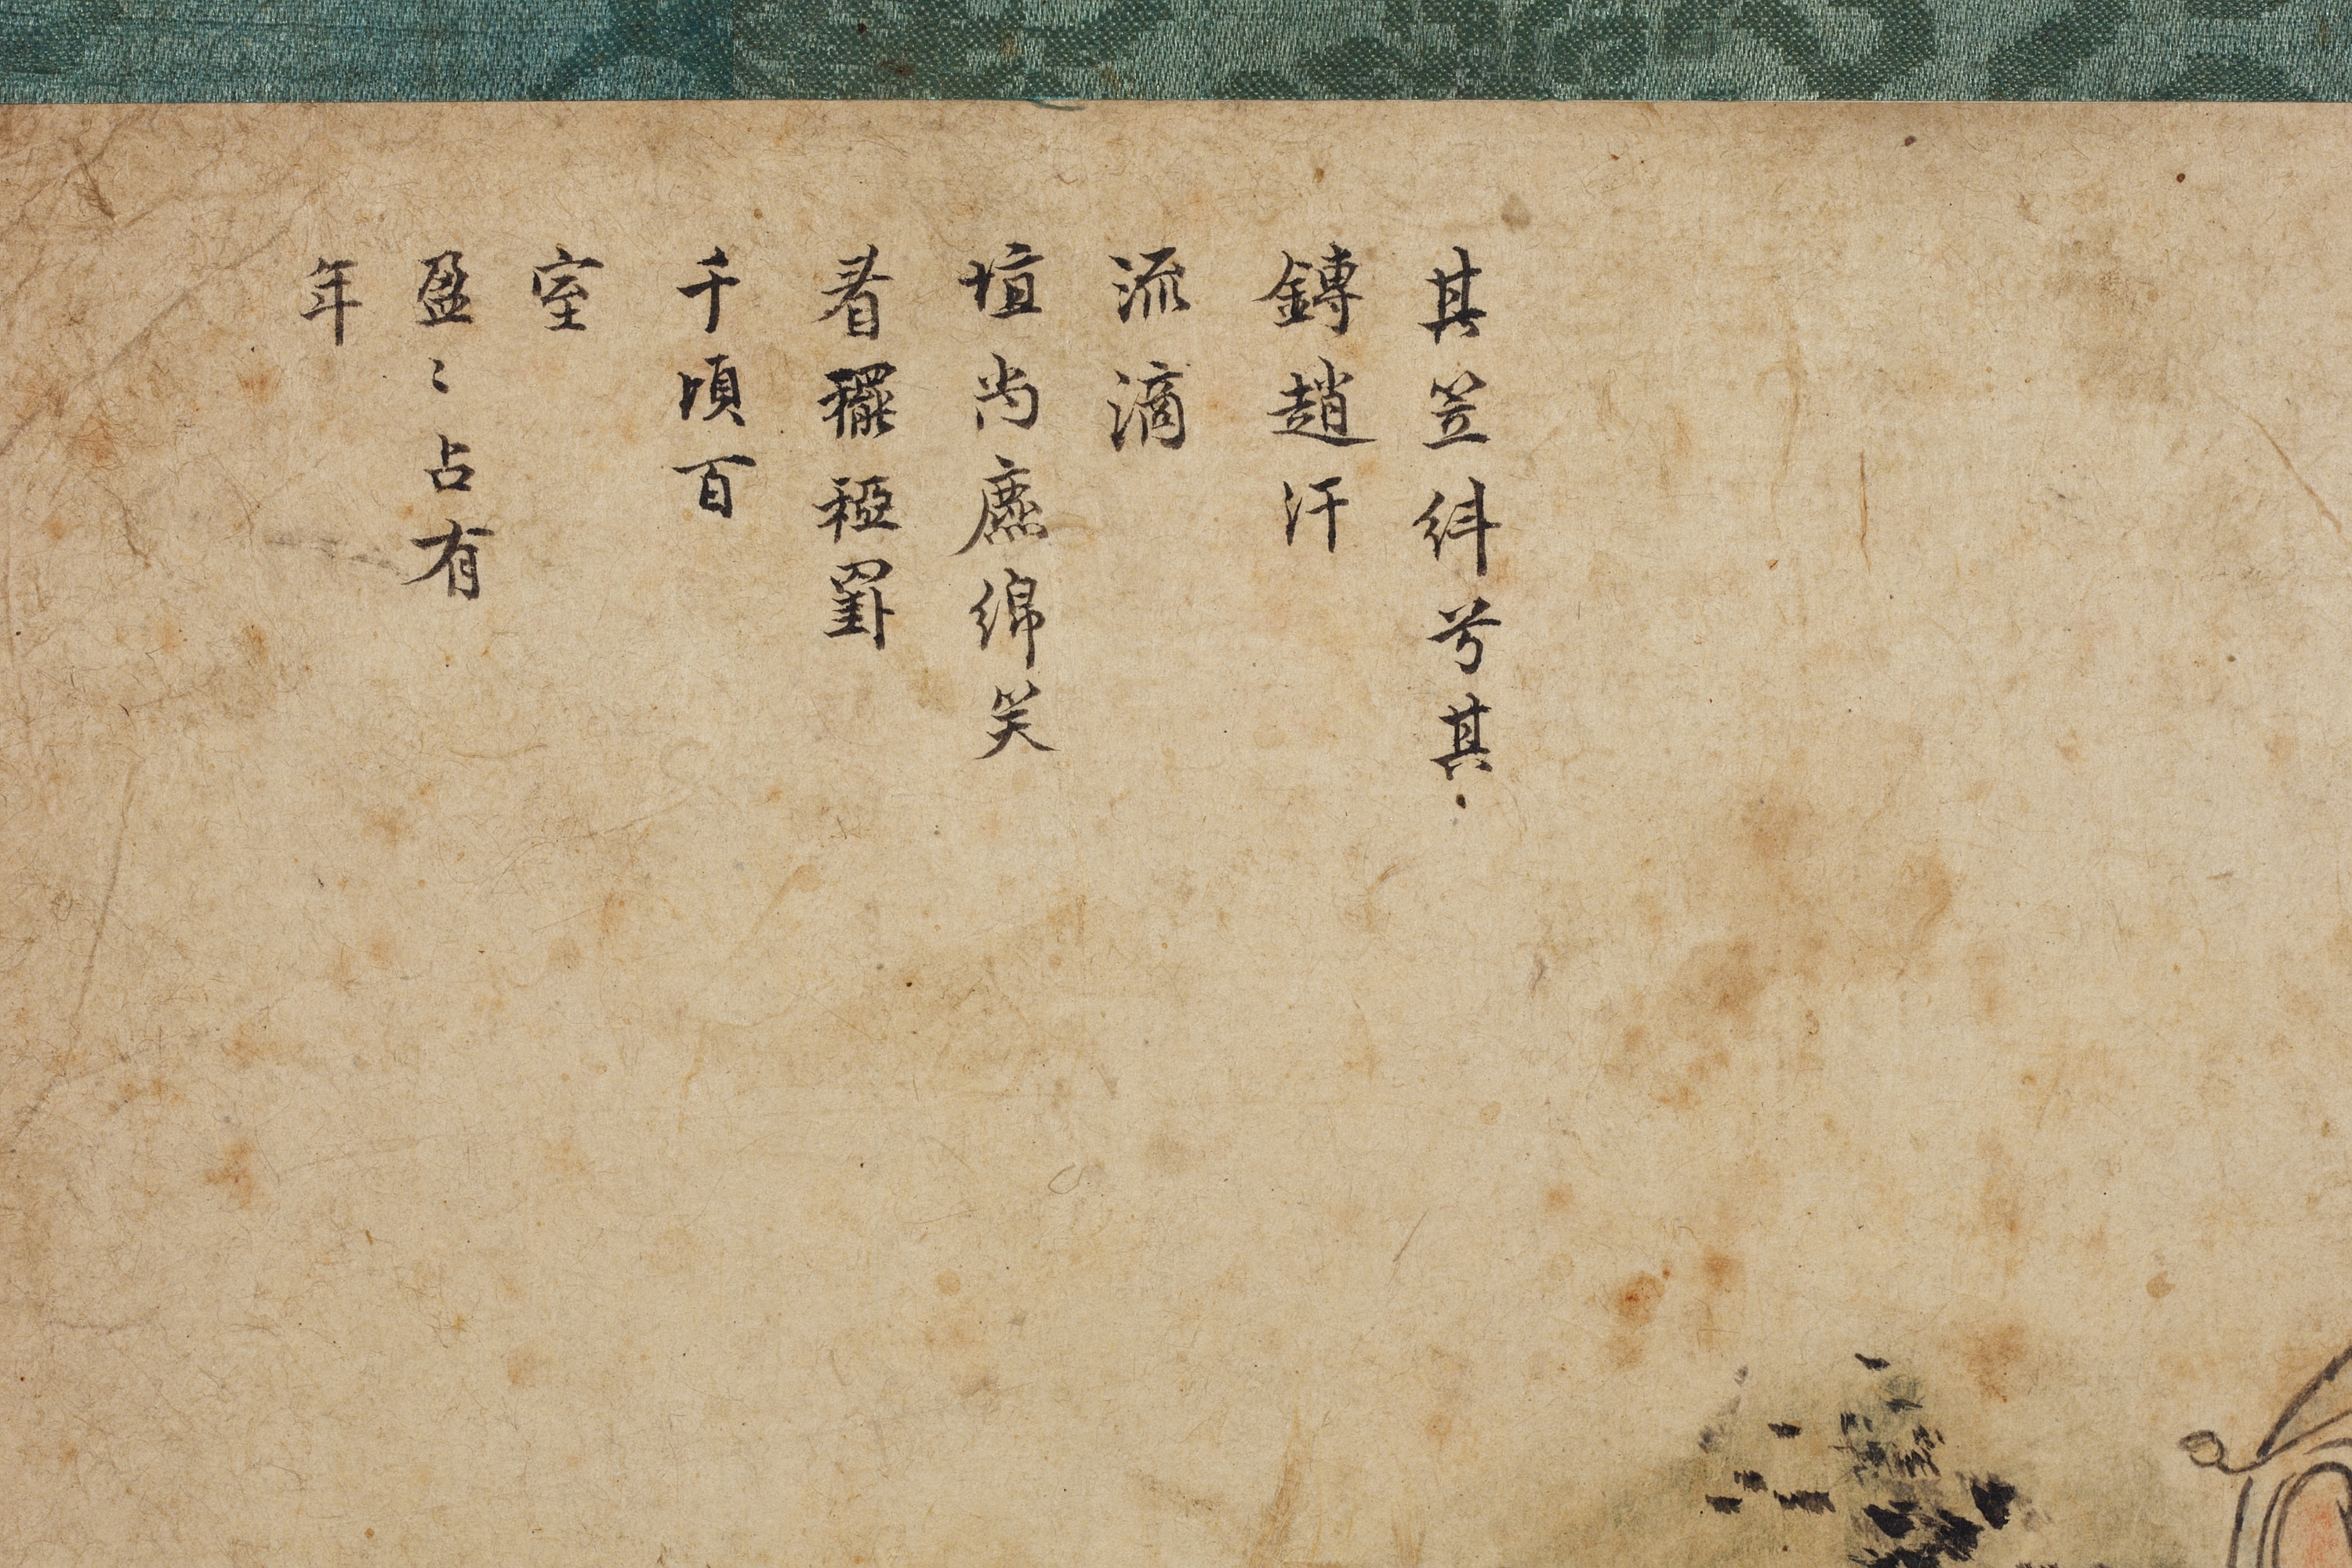 其笠糾兮其
鎛趙汗
流滴
埴尚麃綿笑
看穲稏罫
千頃百
室
盈〻占有
年